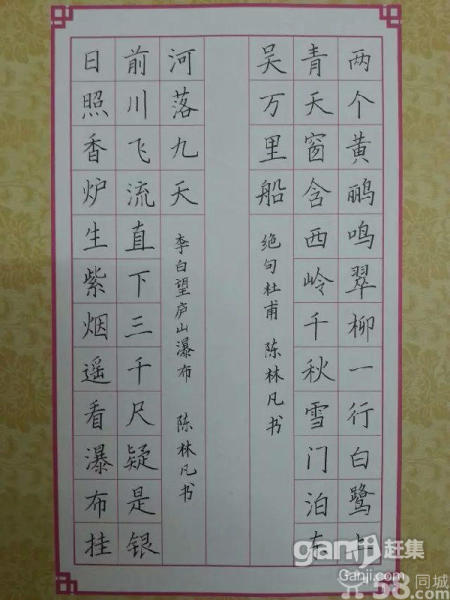 两个黄鹂鸣翠柳一行白鹭上
青天窗含西岭千秋雪门泊东
吴万里船
绝句杜甫 陈林凡书
日照香炉生紫烟遥看瀑布挂
前川飞流直下三千尺疑是银
河落九天
李白望庐山瀑布 陈林凡书
ganji 赶集
Ganji.com
58同城